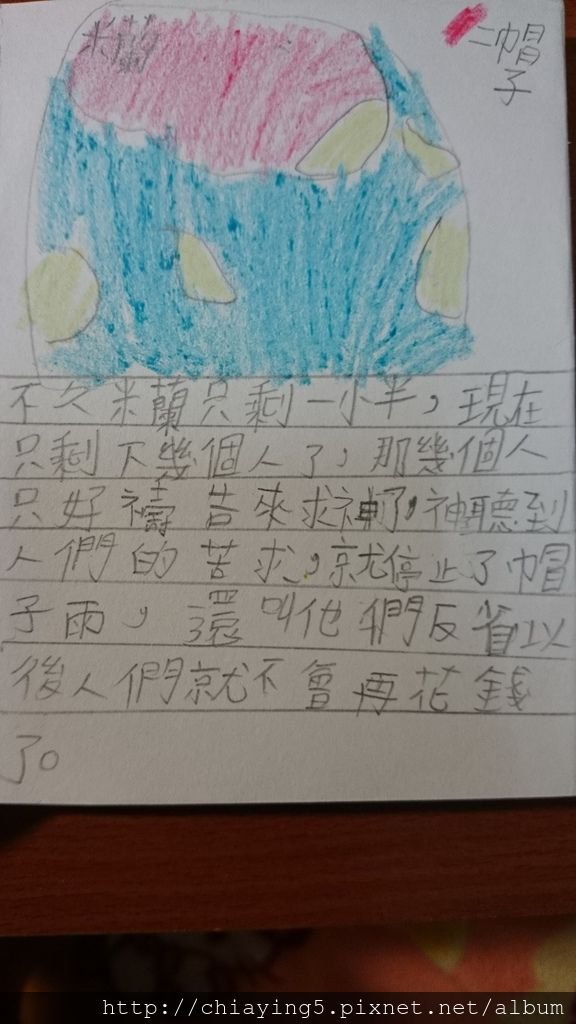 米蘭
=帽
子
不久米蘭只剩一小半，現在
只剩下幾個人了，那幾個人
只好禱告來求神了，神聽到
人們的苦求，就停止了帽
子雨，還叫他們反省以
後人們就不會再花錢
了。
http://chiaying5.pixnet.net/album